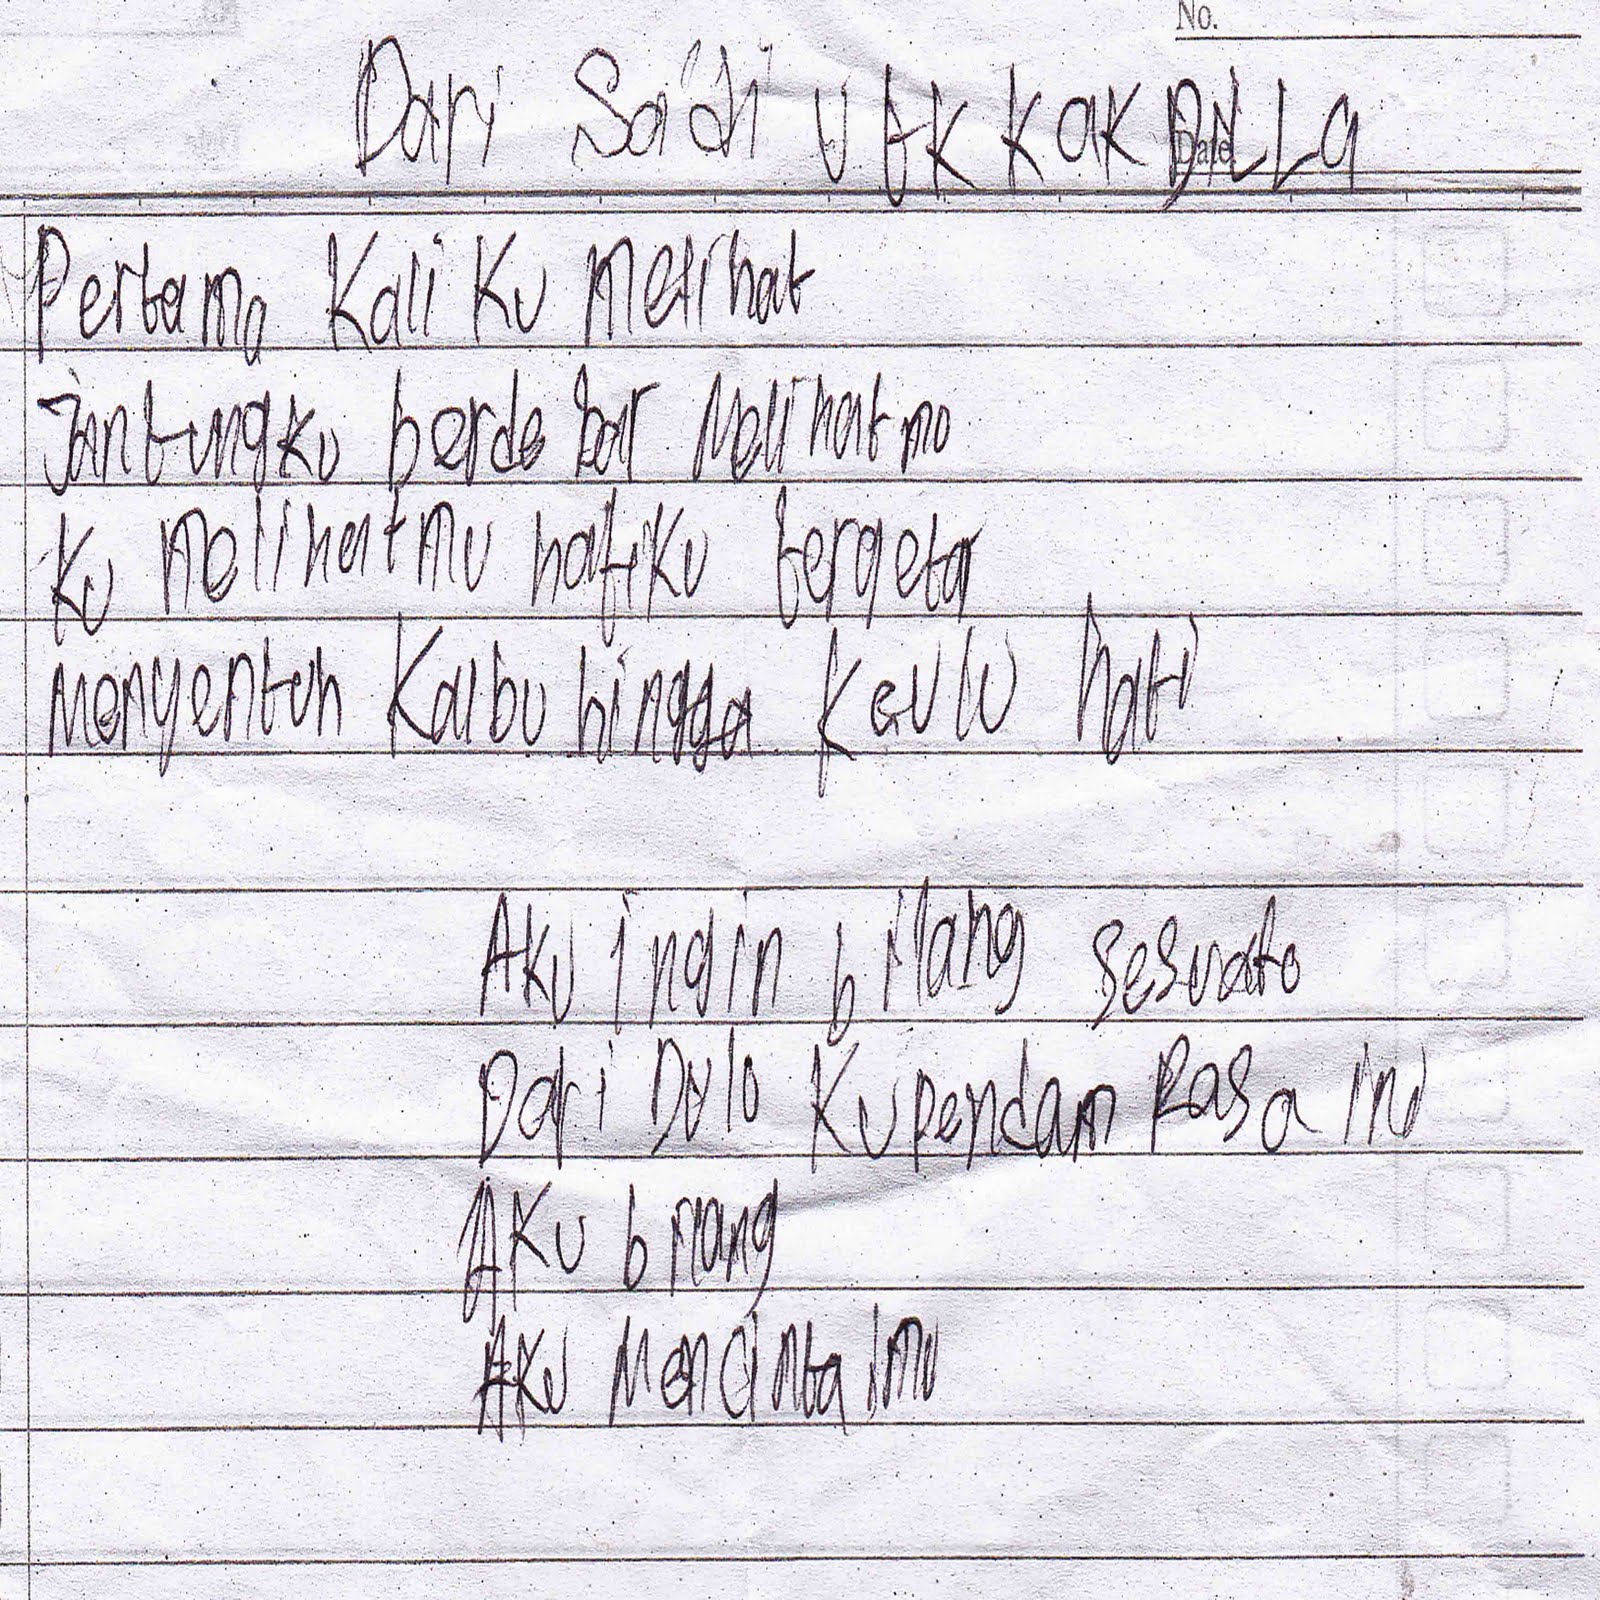 No.
Dari Sa'di Utk Kak DILLa
Date
Pertama Kali Ku melihat
Jantungku berdebar Melihatmu
Ku melihatmu hatiku tergetar
Menyentuh Kalbu hingga Keulu hati
Aku ingin bilang sesuatu
Dari Dulu Kupendam Rasa ini
Aku bilang
Aku Mencintaimu